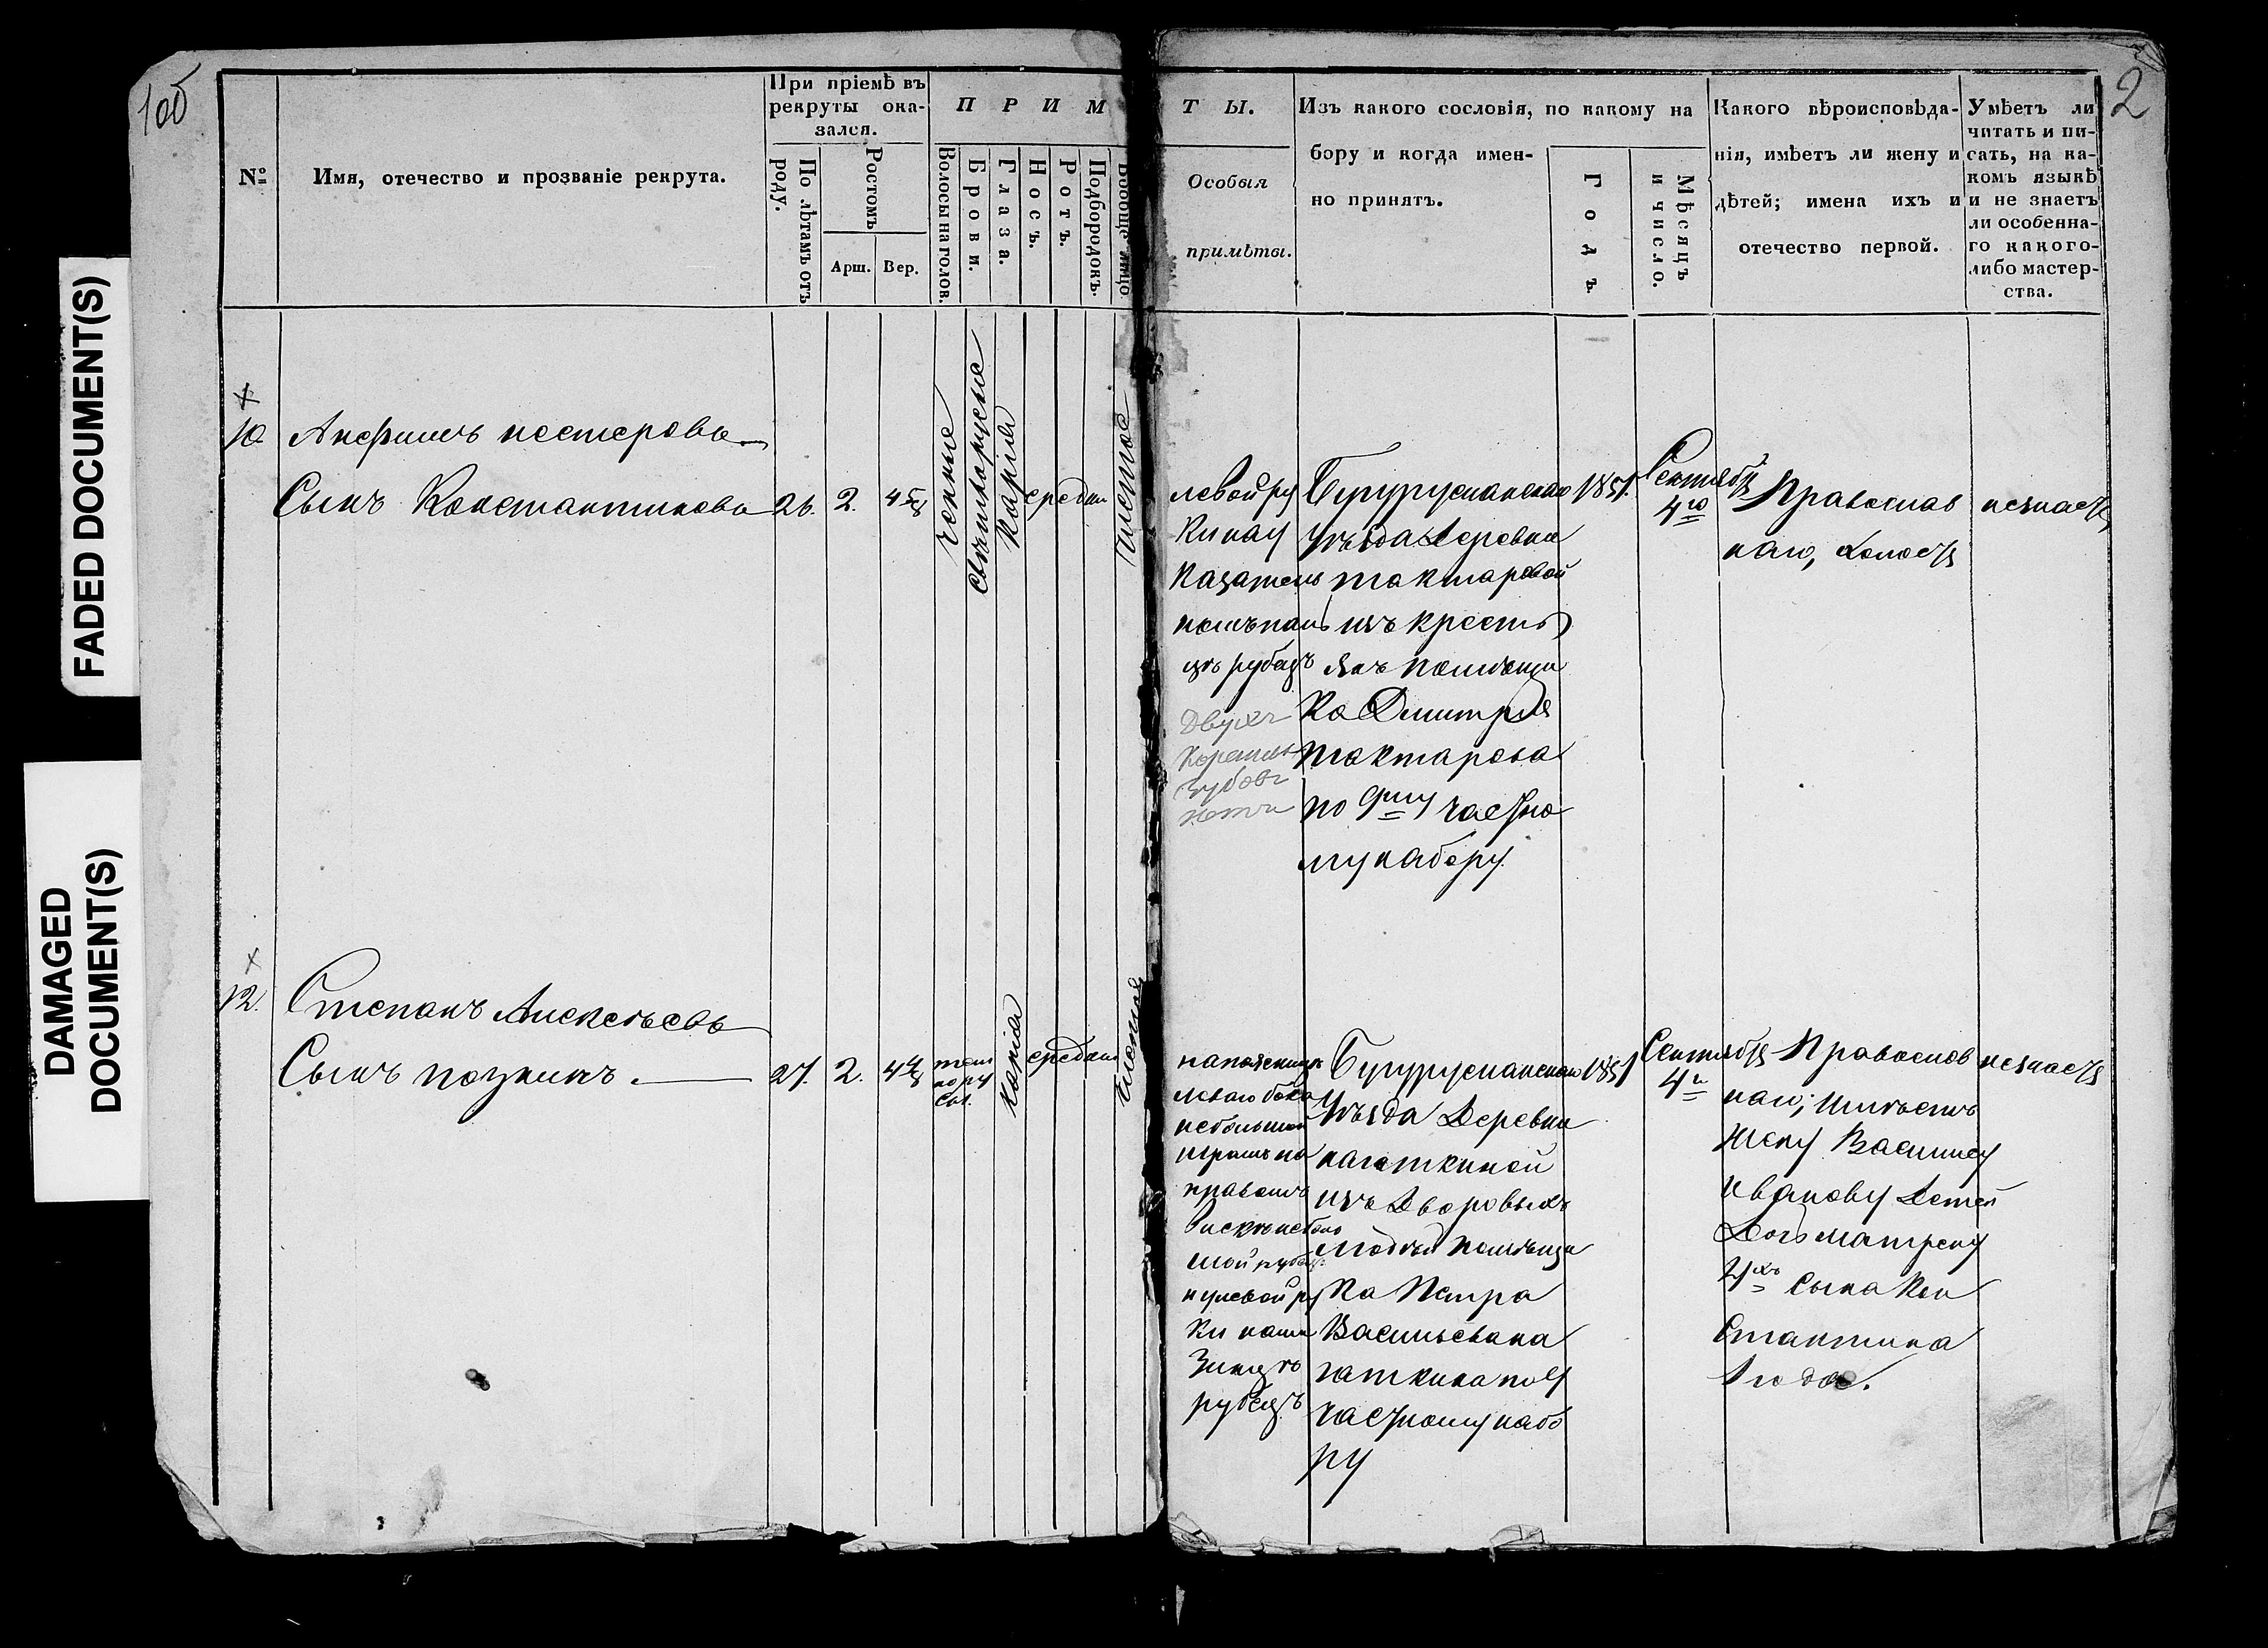 FADED DOCUMENT(S)
DAMAGED
DOCUMENT(S)
1об
2
№
Имя, отечество и прозваніе рекрута.
При пріемѣ въ
рекруты ока-
зался.
По лѣтамъ отъ
роду.
Ростомъ
Арш.
Вер.
П Р И М
Волосы на голов.
Брови.
Глаза.
Носъ.
Ротъ.
Подбородокъ.
Вообще лицо
Т Ы.
Особыя
примѣты.
Изъ какого сословія, по какому на
бору и когда имен-
но принятъ.
Годъ.
Мѣсяцъ
и число.
Какого вѣроисповѣда-
нія, имѣетъ ли жену и
дѣтей; имена ихъ и
отечество первой.
Умѣетъ ли
читать и пи-
сать, на ка-
комъ языкѣ
и не знаетъ
ли особенна-
го какого-
либо мастер-
ства.
10
Анфимъ нестеровъ
Сынъ Константиновъ
26.
2.
4 5/8
светлорусые
Каріи
средни
чистое
левой ру
ки на у
казатель
номъ пальце
рубецъ
Двухъ
Коренныхъ
Зубовъ
нетъ
Бугурусланскаго
Уѣзда Деревни
тактаровой
изъ крестья
янъ помѣщи
ка Дмитрія
тактарова
по 9му частно
му набору
1851.
Сентября
4го
Православ
наго, холостъ
незнаетъ
12.
Степанъ Алексѣевъ
Сынъ позднинъ.
27.
2.
темно ру
Каріи
средни
чистое
на пояснице
леваго бока
небольшой
шрамъ на
правомъ
виске неболь
шой рубец.
и у левой ру
ки
рубецъ
Бугурусланскаго
Уѣзда Деревни
нагаткиной
изъ Дворовыхъ
людей помѣщи
ка Петра
Васильева на
гаткина по 9
частному набо
ру
1851
Сентября
4
Православ
наго; имѣетъ
жену Василису
Иванову Детей
Дочь матрену
2хъ Сына Кон
стантина
1 года.
незнаетъ